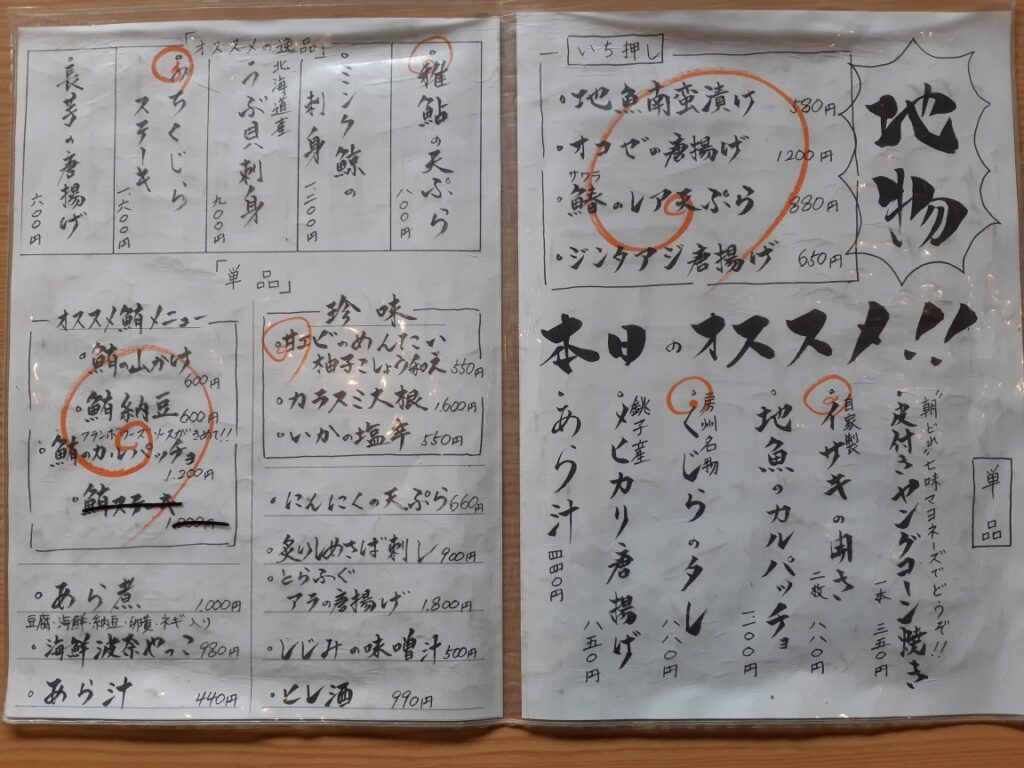 地物
いち押し
・地魚南蛮漬け 580円
・オコゼの唐揚げ 1200円
サワラ
・鰆のレア天ぷら 880円
・ジンタアジ唐揚げ 650円
本日のオススメ!!
単品
"朝どれ"七味マヨネーズでどうぞ!!
・皮付きヤングコーン焼き 一本 三五〇円
自家製
・イサキの開き 二枚 八八〇円
・地魚のカルパッチョ 一、一〇〇円
房州名物
・くじらのタレ 八八〇円
銚子産
・メヒカリ唐揚げ 八五〇円
・あら汁 四四〇円
「オススメの逸品」
・稚鮎の天ぷら 八〇〇円
・ミンク鯨の
刺身 一、二〇〇円
北海道産
・つぶ貝刺身 九〇〇円
・づちくじら
ステーキ 一、六〇〇円
・長芋の唐揚げ 六〇〇円
「単品」
オススメ鮪メニュー
・鮪の山かけ
600円
・鮪納豆 600円
フランボワーズソースがきめて!!
・鮪のカルパッチョ
1.200円
・鮪ステーキ
珍味
・甘エビのめんたい
柚子こしょう和え 550円
・カラスミ大根 1.600円
・いかの塩辛 550円
・にんにくの天ぷら 660円
・炙りしめさば刺し 900円
・とらふぐ
アラの唐揚げ 1.800円
・しじみの味噌汁 500円
・ヒレ酒 990円
・あら煮 1.000円
豆腐・海鮮・納豆・卵黄・ネギ入り
・海鮮波奈やっこ 980円
・あら汁 440円